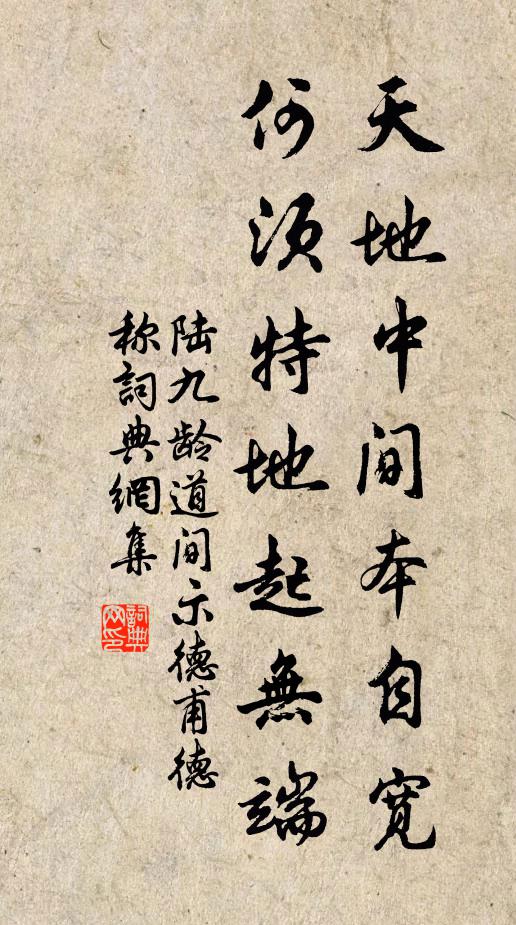 天地中间本自寛
何须特地起無端
陆九龄道间示德甫德
称詞典網集
詞典
网印